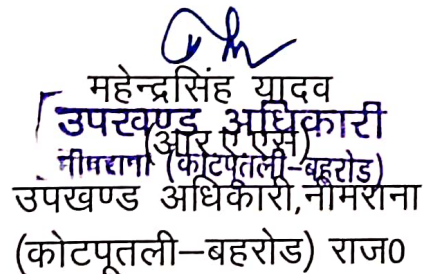 महेन्द्रसिंह यादव
उपखण्ड अधिकारी
(आर ए ऐस)
नीमराना (कोटपूतली-बहरोड)
उपखण्ड अधिकारी,नीमराना
(कोटपूतली–बहरोड) राज0